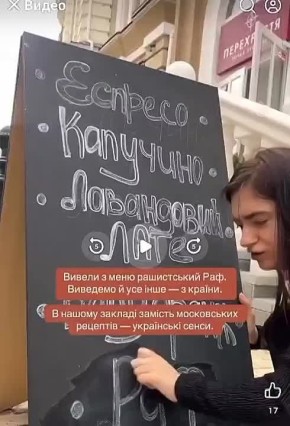 Видео
ПЕРЕХРЕСТЯ
Еспресо
Капучино
Лавандовий
Лате
5
5
Вивели з меню рашистський Раф.
Виведемо й усе інше — з країни.
В нашому закладі замість московських
рецептів — українські сенси.
Раф
17